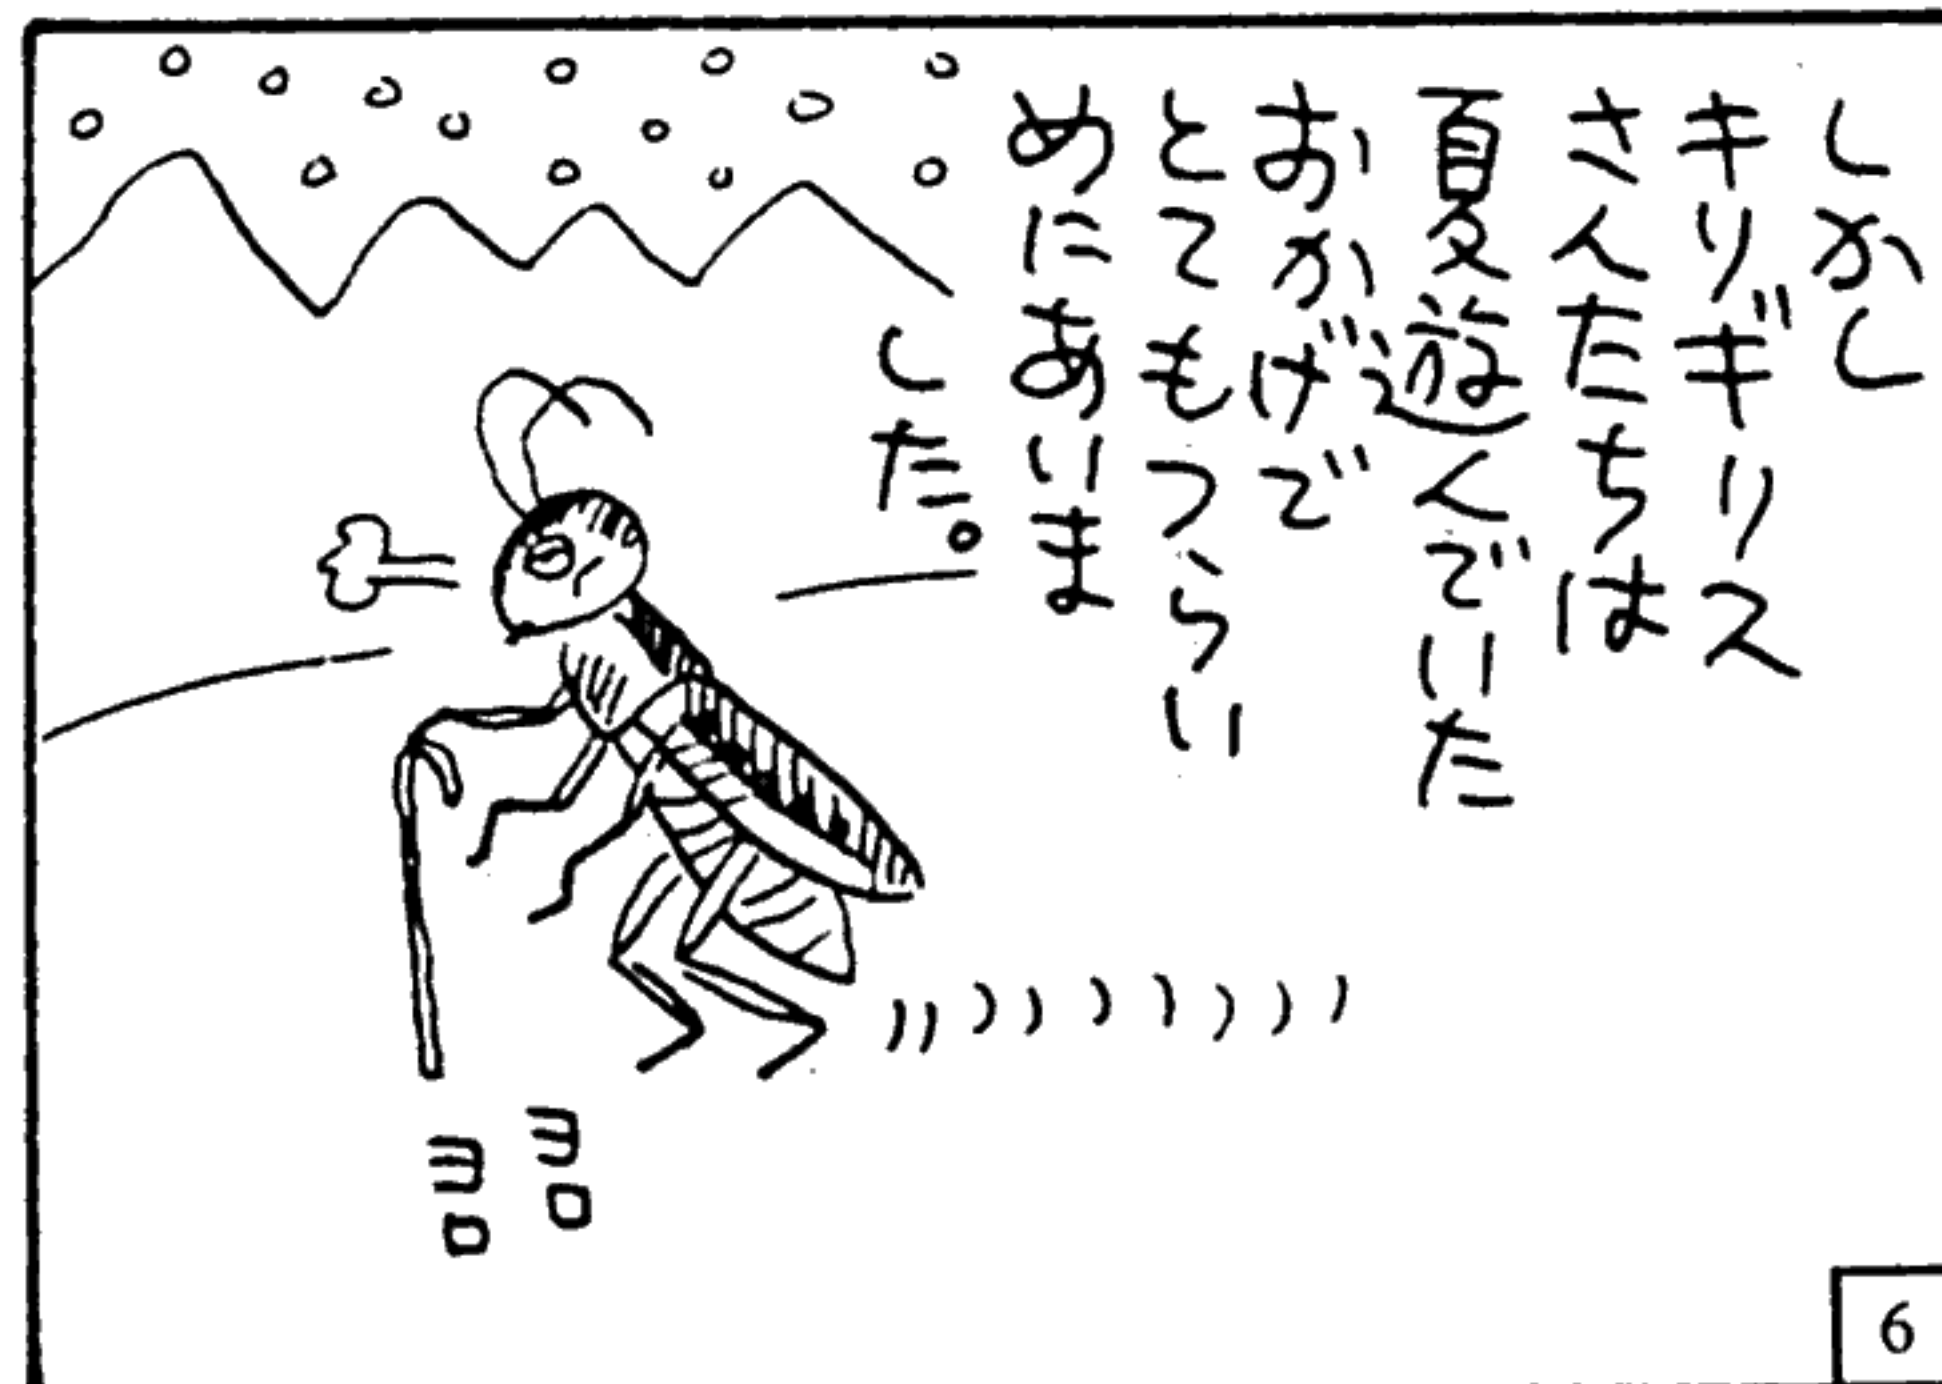 しかし
キリギリス
さんたちは
夏遊んでいた
おかげで
とてもつらい
めにあいま
した。
ヨロ
ヨロ
6